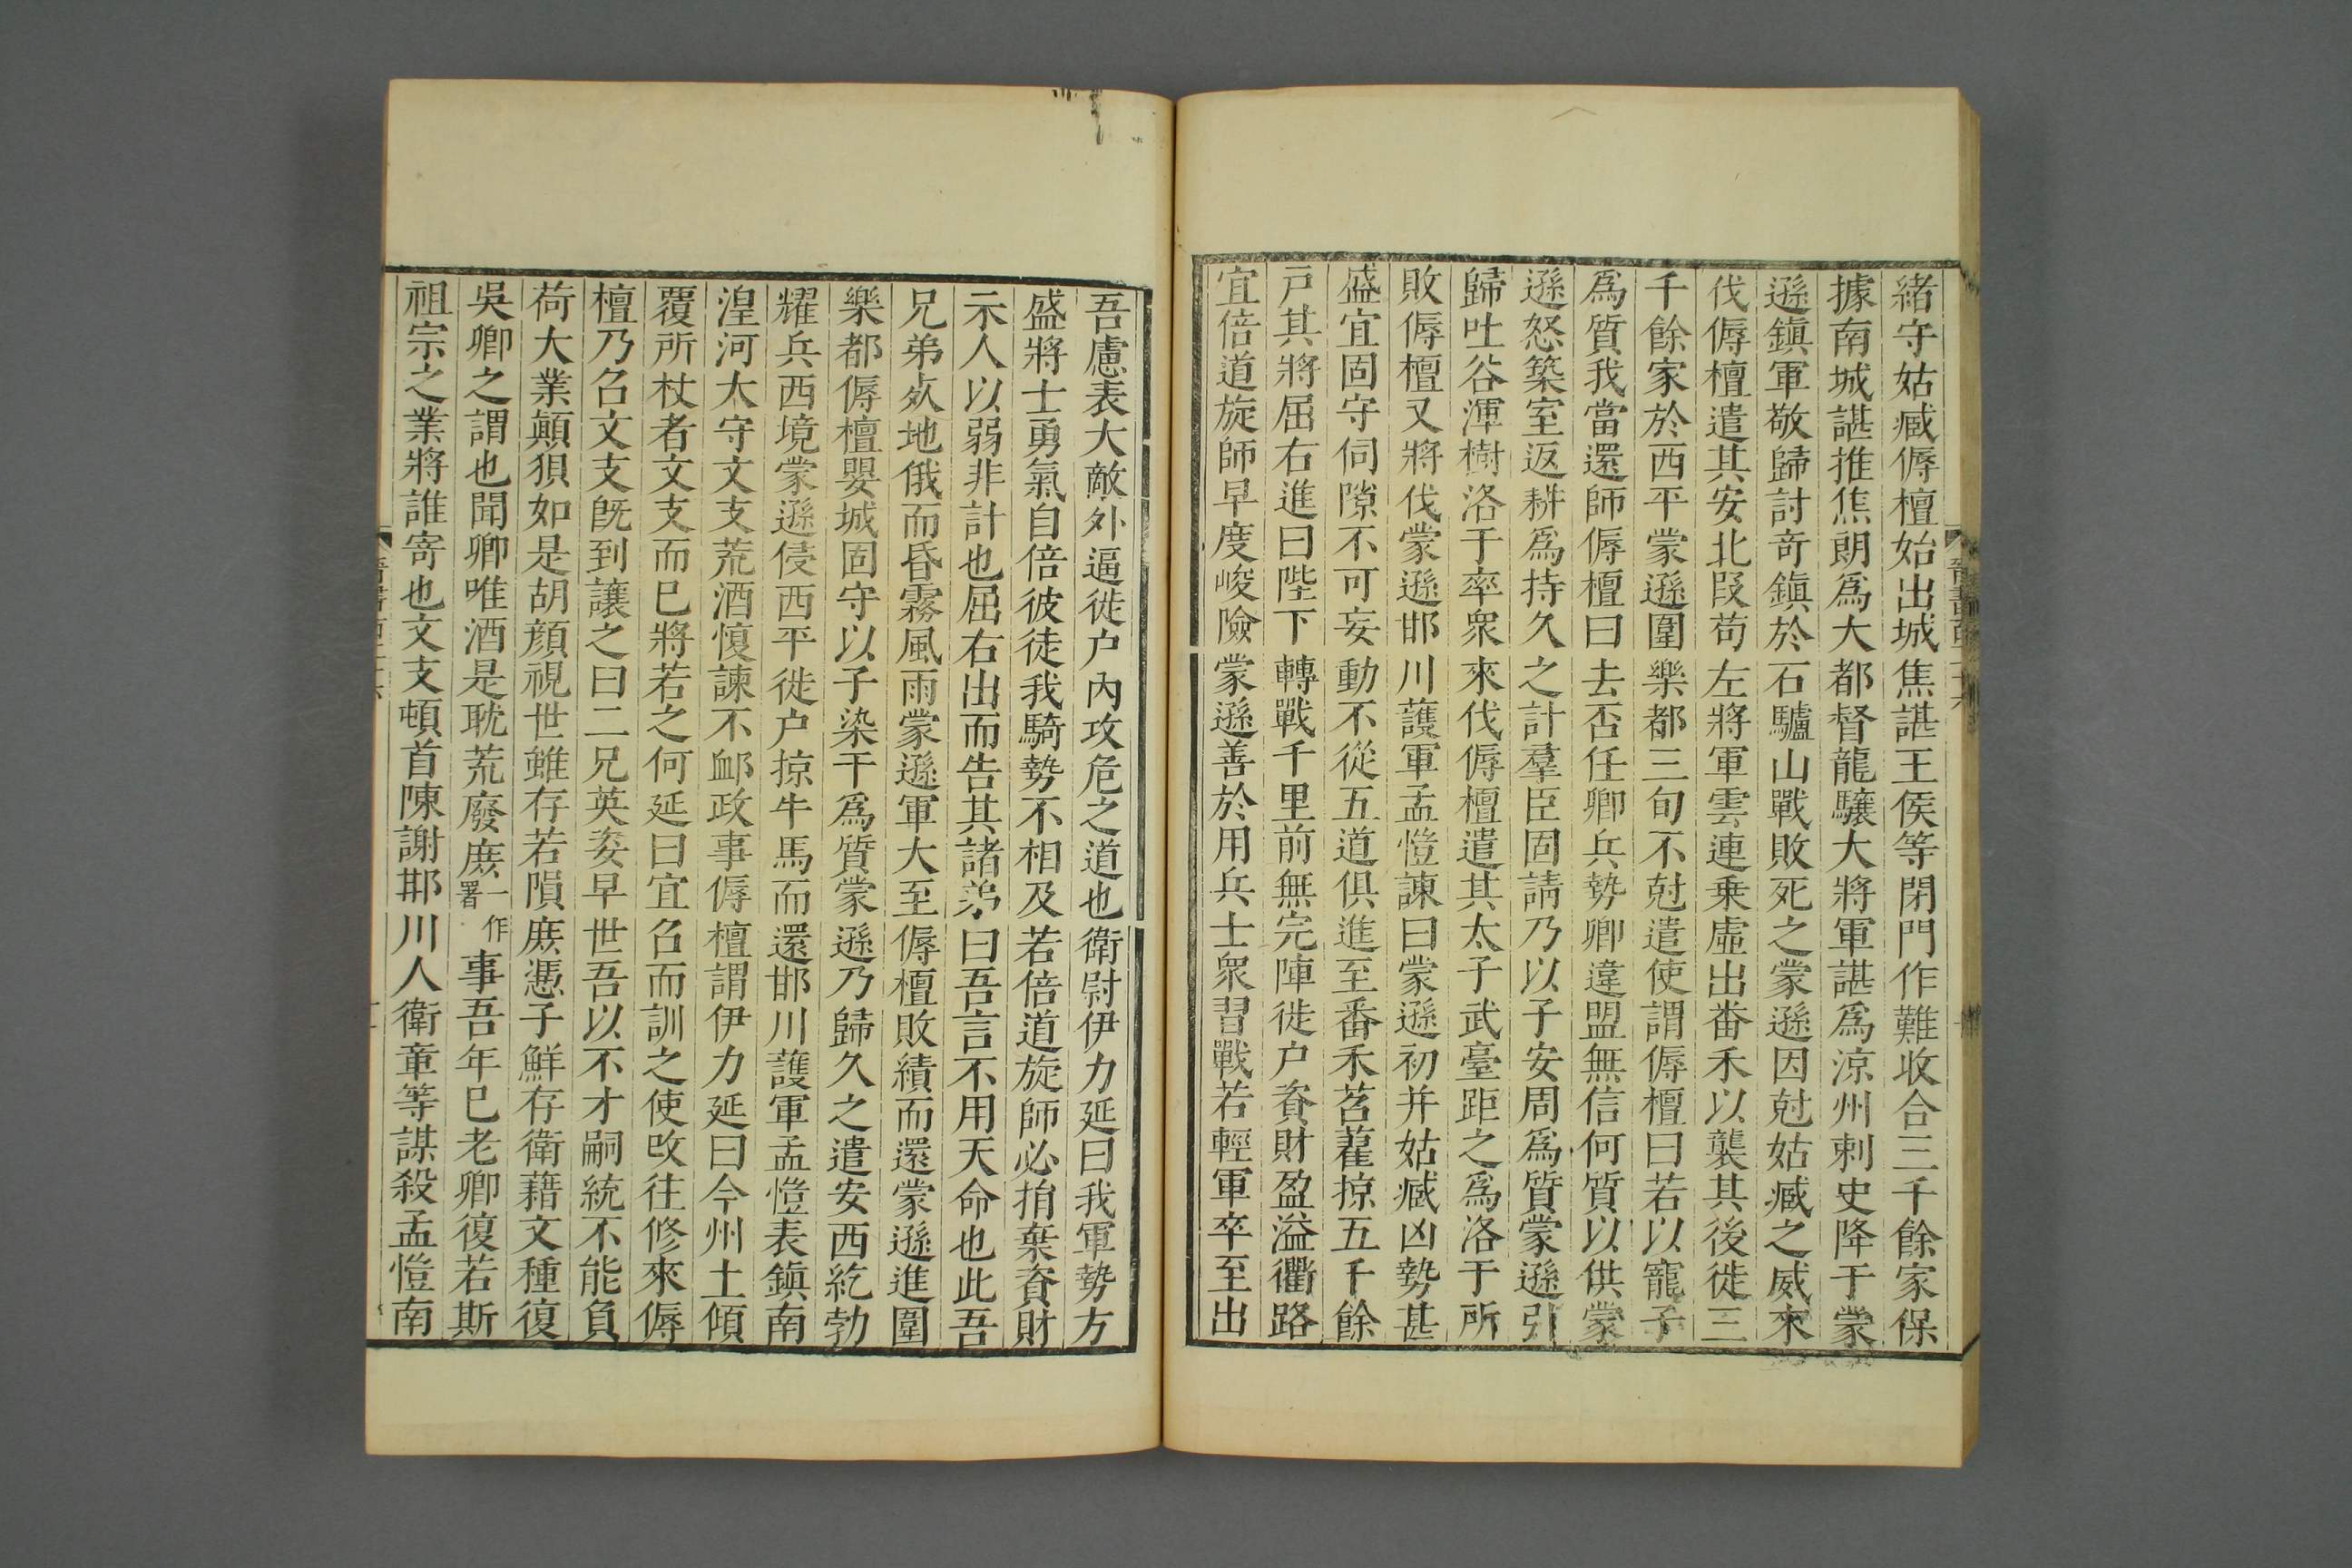 緒守姑臧傉檀始出城焦諶王侯等閉門作難收合三千餘家保
據南城諶推焦朗爲大都督龍驤大將軍諶爲涼州刺史降于蒙
遜鎮軍敬歸討奇鎮於石驢山戰敗死之蒙遜因尅姑臧之威來
伐傉檀遣其安北叚苟左將軍雲連乗虛出番禾以襲其後徙三
千餘家於西平蒙遜圍樂都三旬不尅遣使謂傉檀曰若以寵子
爲質我當還師傉檀曰去否任卿兵勢卿違盟無信何質以供蒙
遜怒築室返耕爲持久之計羣臣固請乃以子安周爲質蒙遜引
歸吐谷渾樹洛于率衆來伐傉檀遣其太子武臺距之爲洛于所
敗傉檀又將伐蒙遜邯川護軍孟愷諫曰蒙遜初并姑臧凶勢甚
盛宜固守伺隙不可妄動不從五道俱進至番禾苕藋掠五千餘
戸其將屈右進曰陛下轉戰千里前無完陣徙户資財盈溢衢路
宜倍道旋師早度峻險蒙遜善於用兵士衆習戰若輕軍卒至出
吾慮表大敵外逼徙户内攻危之道也衛尉伊力延曰我軍勢方
盛將士勇氣自倍彼徒我騎勢不相及若倍道旋師必捐棄資財
示人以弱非計也屈右出而告其諸弟曰吾言不用天命也此吾
兄弟死地俄而昏霧風雨蒙遜軍大至傉檀敗績而還蒙遜進圍
樂都傉檀嬰城固守以子染干爲質蒙遜乃歸久之遣安西紇勃
耀兵西境蒙遜侵西平徙户掠牛馬而還邯川護軍孟愷表鎮南
湟河太守文支荒酒愎諫不䘏政事傉檀謂伊力延曰今州土傾
覆所杖者文支而巳將若之何延曰宜名而訓之使攺往修來傉
檀乃名文支旣到讓之曰二兄英姿早世吾以不才嗣統不能負
荷大業顛狽如是胡顔視世雖存若隕庶憑子鮮存衛藉文種復
吳卿之謂也聞卿唯酒是耽荒廢庶一作署事吾年巳老卿復若斯
祖宗之業將誰寄也文支頓首陳謝邯川人衛章等謀殺孟愷南